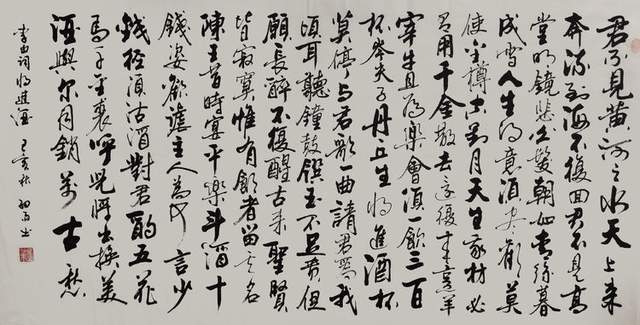 君不见黄河之水天上来
奔流到海不復回君不見高
堂明鏡悲白髮朝如青絲暮
成雪人生得意須尽歡莫
使金樽空對月天生我材必
有用千金散去還復来烹羊
宰牛且為樂會須一飲三百
杯岑夫子丹丘生將進酒杯
莫停与君歌一曲請君為我
傾耳聽鐘鼓饌玉不足贵但
願長醉不復醒古来聖賢
皆寂寞惟有飲者留其名
陳王昔時宴平樂斗酒十
千恣歡謔主人為何言少
錢徑須沽酒對君酌五花
馬千金裘呼兒將出換美
酒與尔同銷萬古愁
李白词将進酒 己亥秋